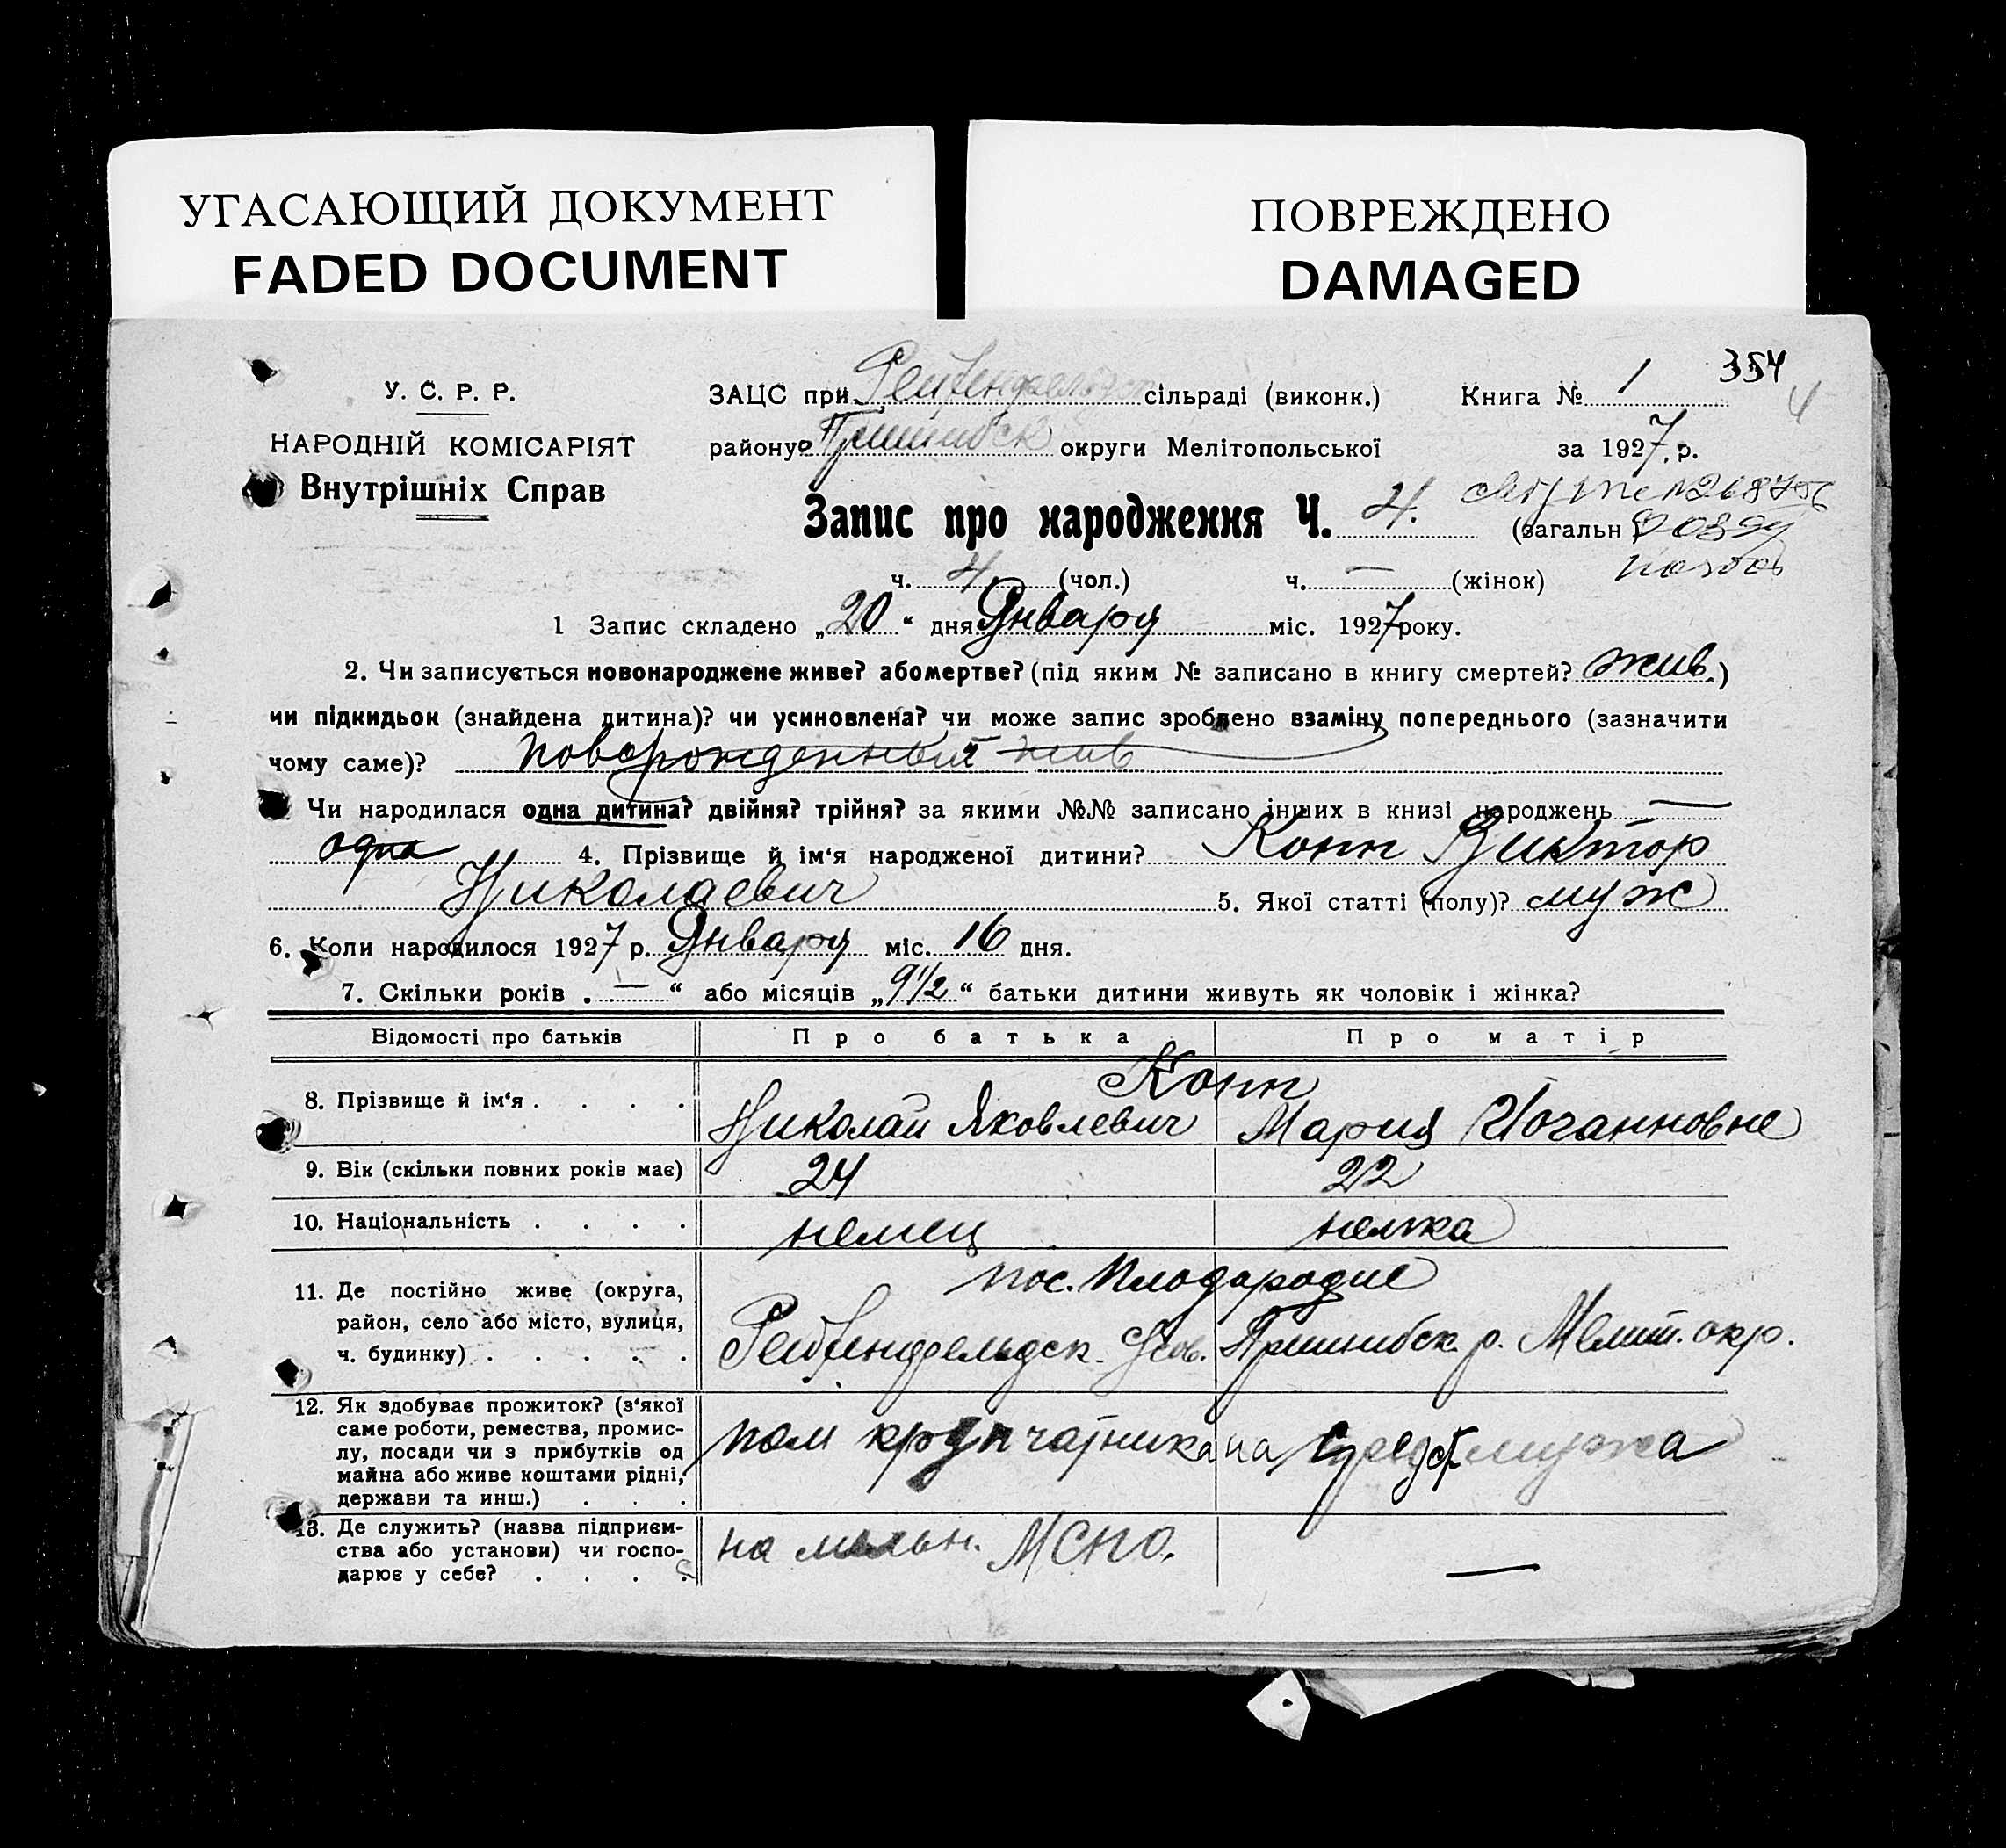 УГАСАЮЩИЙ ДОКУМЕНТ
FADED DOCUMENT
ПОВРЕЖДЕНО
DAMAGED
354
4
У. С. Р. Р.
НАРОДНІЙ КОМІСАРІЯТ
Внутрішніх Справ
ЗАЦС при Рейхенфельдск сільраді (виконк.) Книга № 1
району Пришибск округи Мелітопольської за 1927 р.
Запис про народження Ч. 4. (загальн
ч. 4 (чол.) ч. — (жінок)
1 Запис складено „20“ дня Января міс. 1927 року.
2. Чи записується новонароджене живе? або мертве? (під яким № записано в книгу смертей? жив.)
чи підкидьок (знайдена дитина)? чи усиновлена? чи може запис зроблено взаміну попереднього (зазначити
чому саме)? новорожденный жив
Чи народилася одна дитина? двійня? трійня? за якими №№ записано інших в книзі народжень —
одна 4. Прізвище й ім‘я народженої дитини? Копп Виктор
Николаевич 5. Якої статті (полу)? муж
6. Коли народилося 1927 р. Января міс. 16 дня.
7. Скільки років „ — “ або місяців „9½“ батьки дитини живуть як чоловік і жінка?
Відомості про батьків Про батька Про матір
8. Прізвище й ім‘я . . . . Копп
Николай Яковлевич Мария Иоганновне
9. Вік (скільки повних років має) 24 22
10. Національність . . . . немец немка
11. Де постійно живе (округа, район, село або місто, вулиця, ч. будинку) . . . . .
пос. Плодородие
Рейхенфельдск. Пришибск. р. Мелит. окр.
12. Як здобуває прожиток? (з‘якої
саме роботи, ремества, промис-
лу, посади чи з прибутків од
майна або живе коштами рідні,
держави та инш.) . . .
пом крупчатника на средст мужа
13. Де служить? (назва підприєм-
ства або установи) чи госпо-
дарює у себе? . . . .
на мельн. МСПО. —